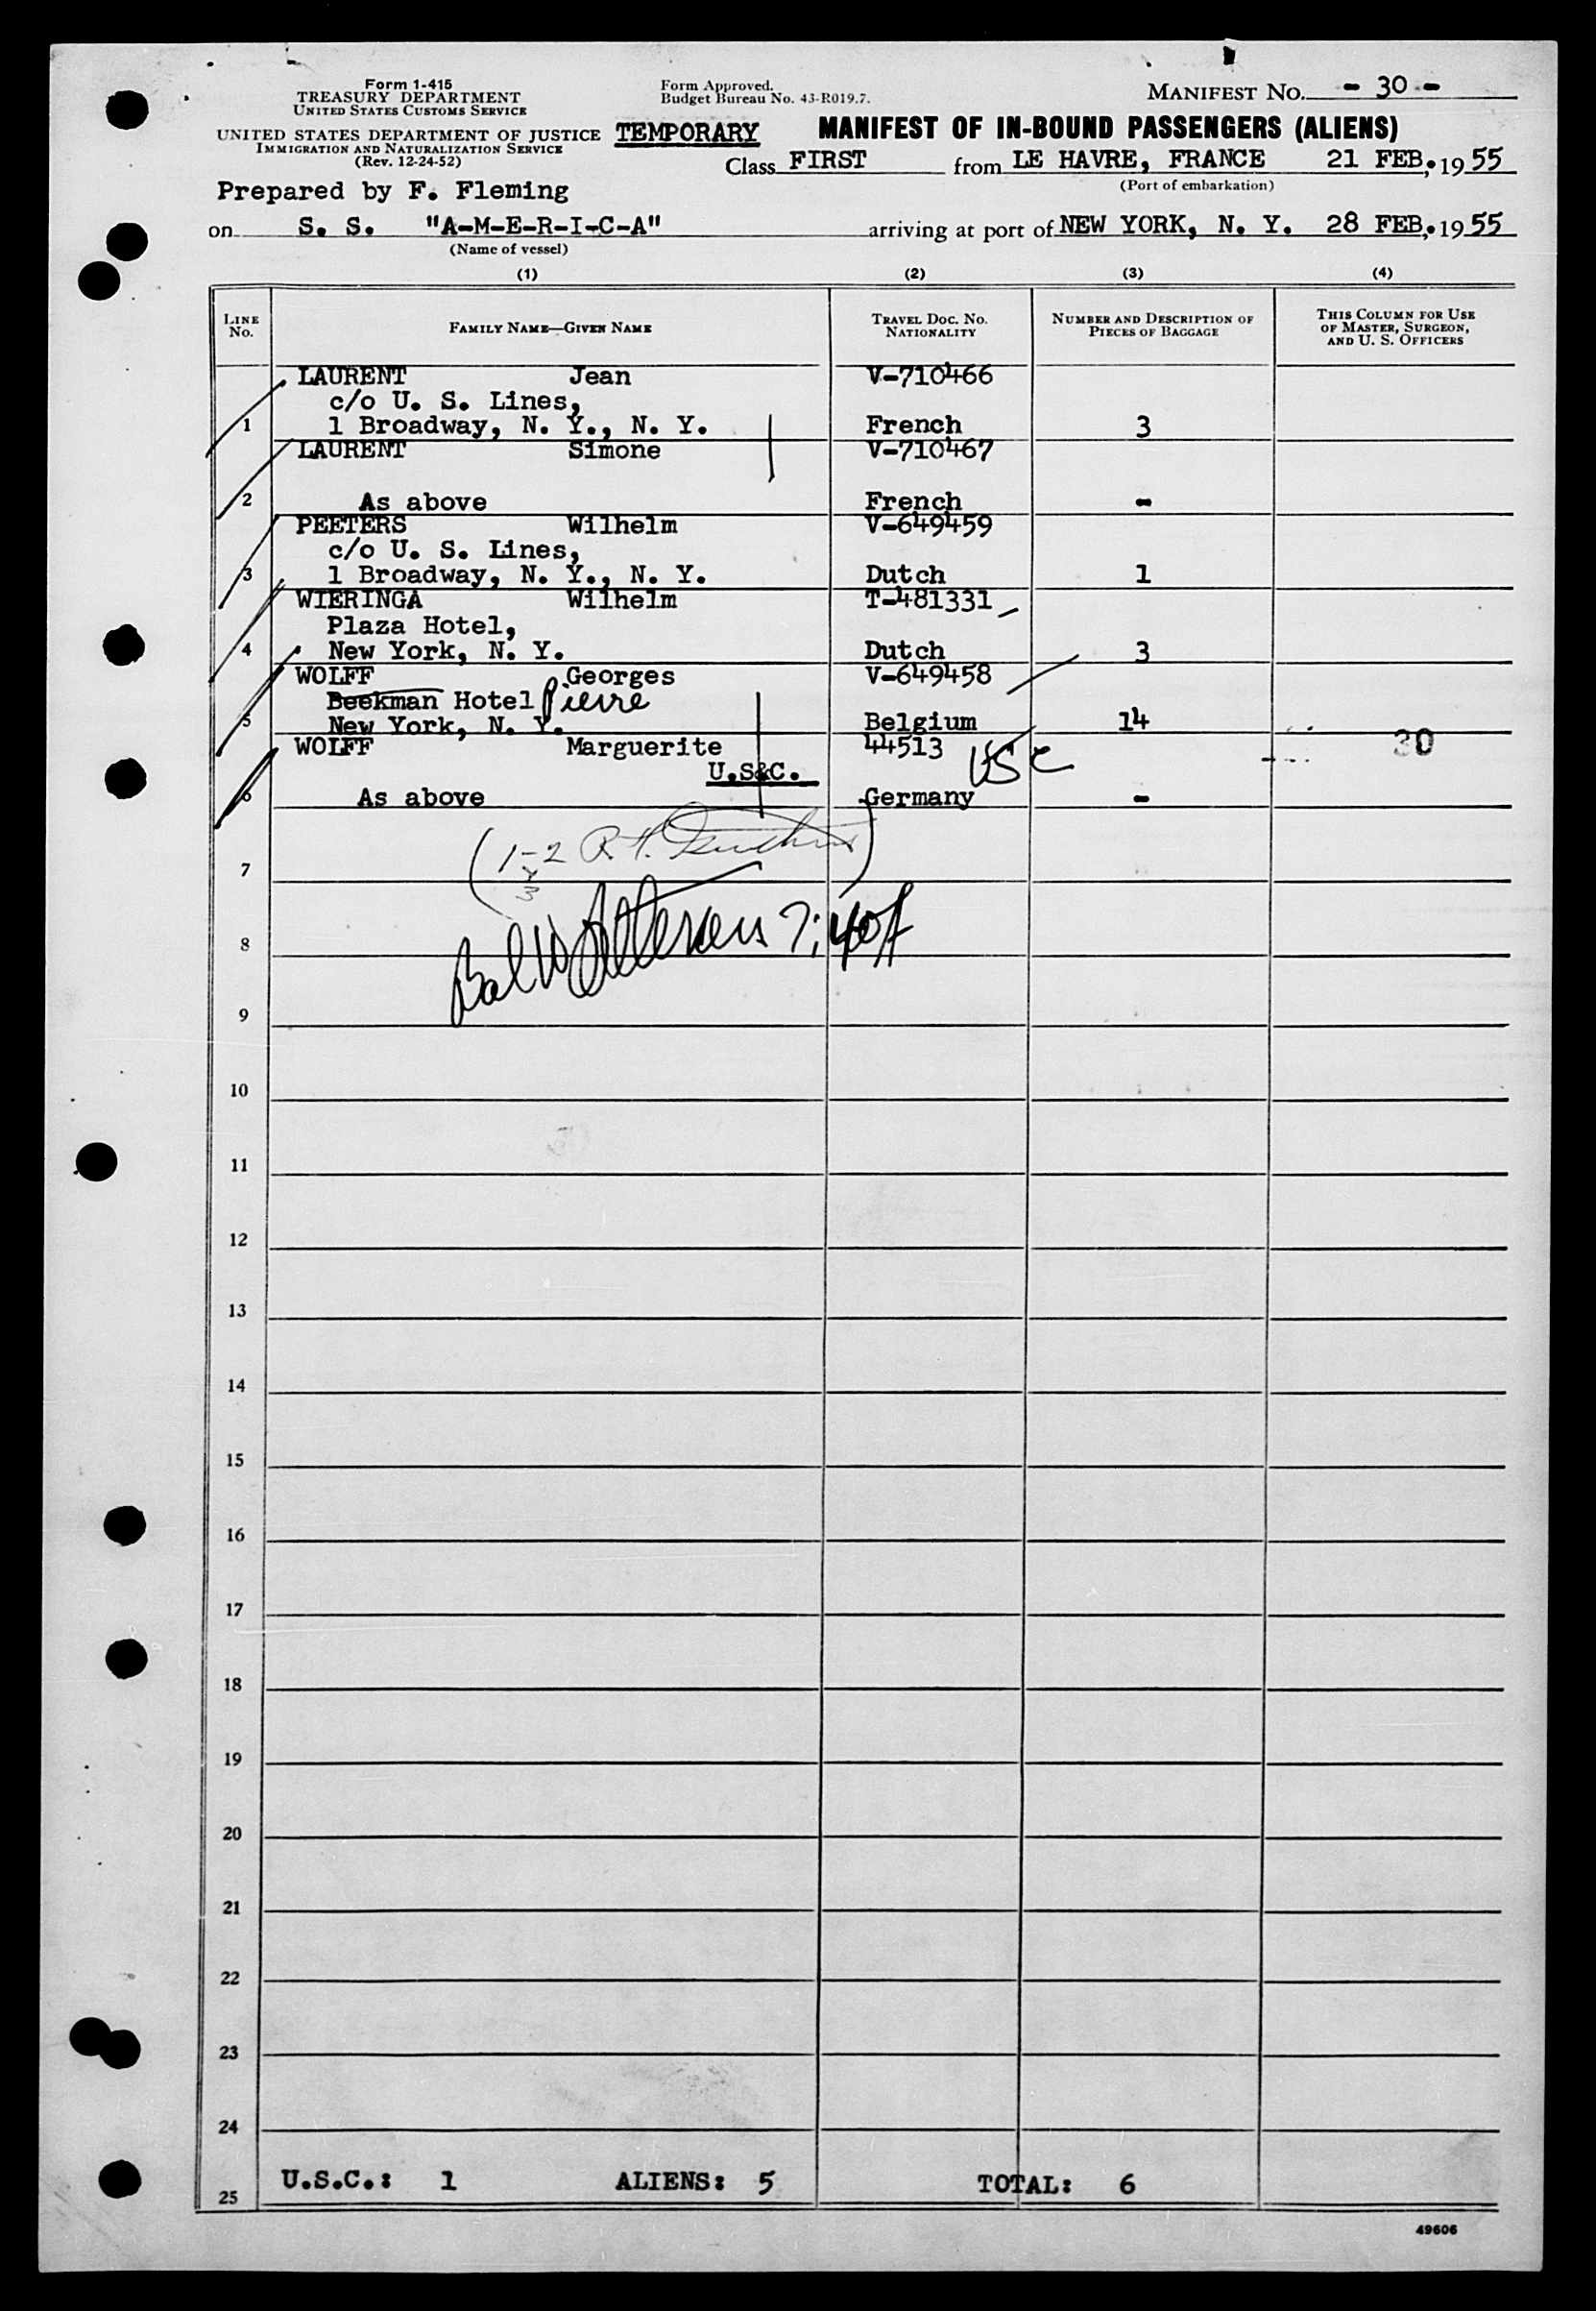 Form 1-415
TREASURY DEPARTMENT
UNITED STATES CUSTOMS SERVICE
UNITED STATES DEPARTMENT OF JUSTICE
IMMIGRATION AND NATURALIZATION SERVICE
(Rev. 12-24-52)
Form Approved.
Budget Bureau No. 43-R019.7.
MANIFEST NO. - 30 -
TEMPORARY MANIFEST OF IN-BOUND PASSENGERS (ALIENS)
Class FIRST from LE HAVRE, FRANCE 21 FEB., 1955
(Port of embarkation)
Prepared by F. Fleming
on S. S. "A-M-E-R-I-C-A" arriving at port of NEW YORK, N. Y. 28 FEB., 1955
(Name of vessel)
(1) (2) (3) (4)
LINE No. FAMILY NAME—GIVEN NAME TRAVEL DOC. NO. NATIONALITY NUMBER AND DESCRIPTION OF PIECES OF BAGGAGE THIS COLUMN FOR USE OF MASTER, SURGEON, AND U. S. OFFICERS
LAURENT Jean V-710466
c/o U. S. Lines,
1 1 Broadway, N. Y., N. Y. French 3
LAURENT Simone V-710467
2 As above French -
PEETERS Wilhelm V-649459
c/o U. S. Lines,
3 1 Broadway, N. Y., N. Y. Dutch 1
WIERINGA Wilhelm T-481331
Plaza Hotel,
4 New York, N. Y. Dutch 3
WOLFF Georges V-649458
Beekman Hotel Pierre
5 New York, N. Y. Belgium 14
WOLFF Marguerite 44513 30
U.S.C. USC
6 As above Germany -
(1-2 R. H.
7
8
Bal W 7:40
9
10
11
12
13
14
15
16
17
18
19
20
21
22
23
24
25 U.S.C.: 1 ALIENS: 5 TOTAL: 6
49606